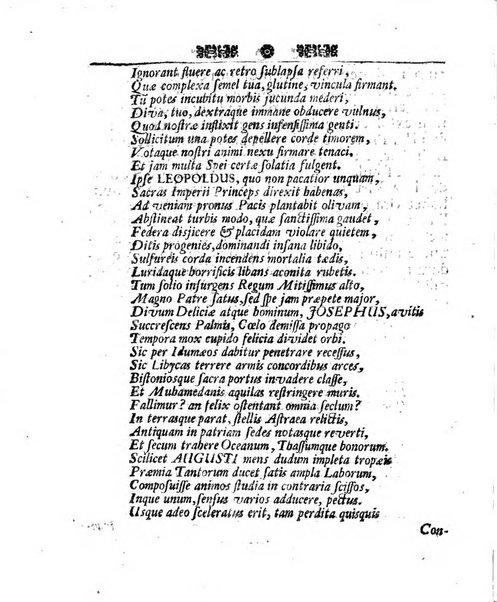 Ignorant fluere ac retro ſublapſa referri,
Quæ complexa ſemel tua, glutine, vincula firmant.
Tu potes incubitu morbis jucunda mederi,
Diva, tuo, dextraque immane obducere vulnus,
Quod noſtræ inflixit gens infenſiſſima genti.
Sollicitum una potes depellere corde timorem,
Votaque noſtri animi nexu firmare tenaci.
Et jam multa Spei certæ ſolatia fulgent.
Ipſe LEOPOLDUS, quo non pacatior unquam,
Sacras Imperii Princeps direxit habenas,
Ad veniam pronus Pacis plantabit olivam,
Abſtineat turbis modo, quæ ſanctiſſima gaudet,
Federa disjicere & placidam violare quietem,
Ditis progenies, dominandi inſana libido,
Sulfureis corda incendens mortalia tædis,
Luridaque horrificis libans aconita rubetis.
Tum ſolio inſurgens Regum Mitiſſimus alto,
Magno Patre ſatus, ſed ſpe jam præpete major,
Divum Deliciæ atque hominum, JOSEPHUS, avitis
Succreſcens Palmis, Cœlo demiſſa propago
Tempora mox cupido felicia dividet orbi.
Sic per Idumæos dabitur penetrare receſſus,
Sic Libycas terrere armis concordibus arces,
Biſtonioſque ſacra portus invadere claſſe,
Et Muhamedanis aquilas reſtringere muris.
Fallimur? an felix oſtentant omnia ſeclum?
In terrasque parat, ſtellis Aſtræa relictis,
Antiquam in patriam ſedes notasque reverti,
Et ſecum trahere Oceanum, Thaſſumque bonorum.
Scilicet AUGUSTI mens dudum impleta tropæis
Præmia Tantorum ducet ſatis ampla Laborum,
Compoſuiſſe animos ſtudia in contraria ſciſſos,
Inque unum, ſenſus varios adducere, pectus.
Usque adeo ſceleratus erit, tam perdita quisquis
Con-